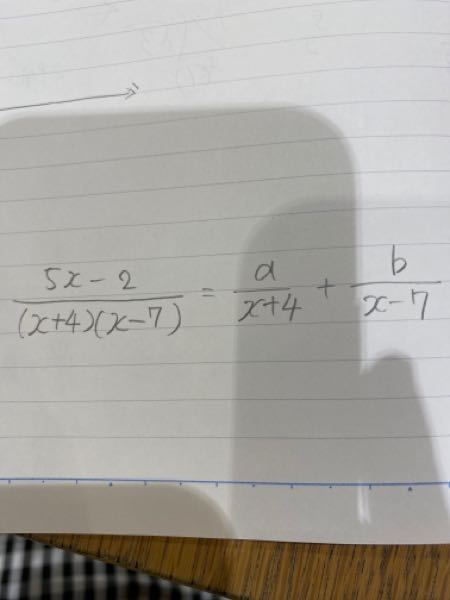 (5x-2)/((x+4)(x-7)) = a/(x+4) + b/(x-7)